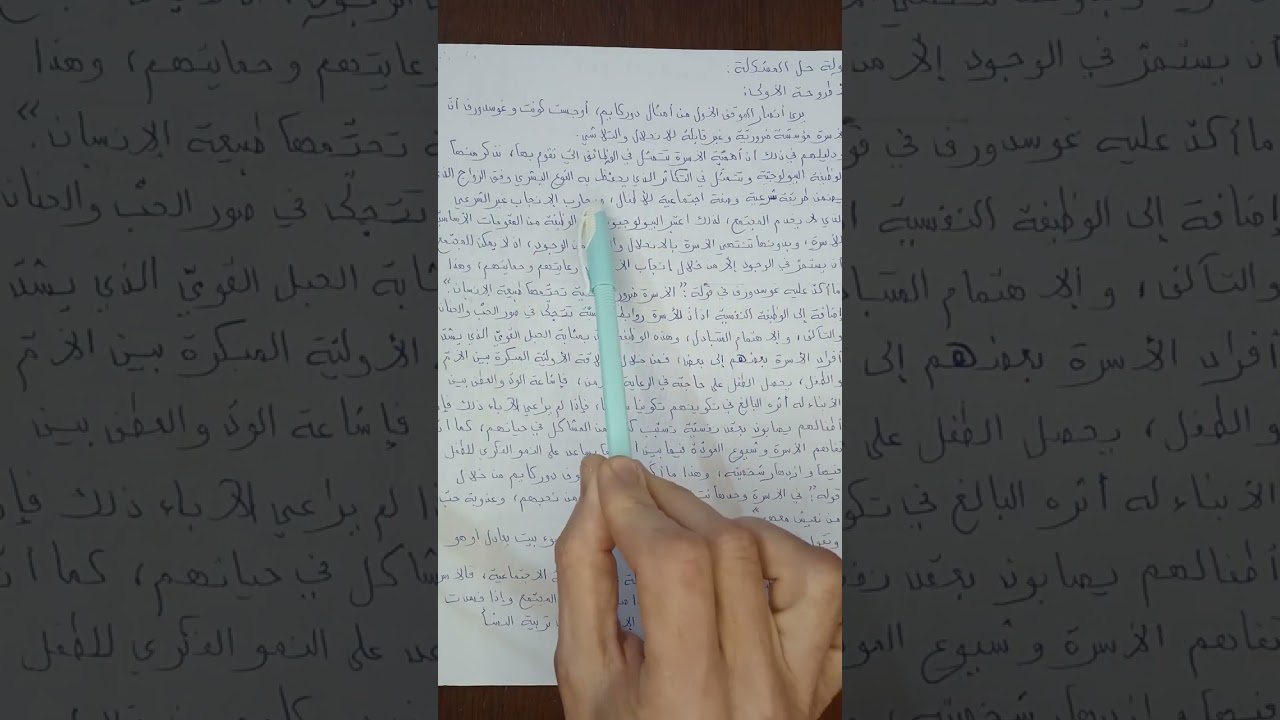 ولة حل المشكلة:
طروحة الأولى:
يرى أنصار الموقف الأول من أمثال دوركايم، أوجست كونت و غوسدورف أنّ
لأسرة مؤسسة ضرورية وغير قابلة للانحلال والتلاشي.
ودليلهم في ذلك أن أهمية الأسرة تتمثل في الوظائف التي تقوم بها، نذكر منها
لوظيفة البيولوجية وتتمثل في التكاثر الذي يحفظ به النوع البشري وفق الزواج الذي
يضمن طريقة شرعية وصفة اجتماعية للأطفال، يحارب الإنجاب غير الشرعي
لذي لا يخدم المجتمع، لذلك اعتبر البيولوجيو الوظيفة من المقومات الأساسية
للأسرة، وبدونها تنتهي الأسرة بالانحلال من الوجود، اذ لا يمكن للمجتمع
أن يستمرّ في الوجود إلا من خلال إنجاب الأ رعايتهم وحمايتهم، وهذا
ما أكدّ عليه غوسدورف في قوله: "الأسرة ضرور ية تحتّمها طبيعة الإنسان"
إضافة إلى الوظيفة النفسية اذ أنّ للأسرة روابط تتجلّى في صور الحبّ والحنان
والتآلف، والاهتمام المتبادل، وهذه الوظيفة بمثابة الحبل القويّ الذي يشدّ
أفراد الأسرة بعضهم إلى بعض، فمن خلال لاقة الأوليّة المبكرة بين الأمّ
والطفل، يحصل الطفل على حاجته في الرعاية من، فإشاعة الودّ والعطف بين
الأبناء له أثره البالغ في تكوينهم تكوينا فإذا لم يراعي الآباء ذلك فإ
أطفالهم يصابون بعقد نفسيّة تسبّب من المشاكل في حياتهم، كما أنّ
تفاهم الأسرة وشيوع المودّة فيما بين يساعد على النمو الفكري للطفل
فيها وازدهار شخصيته، وهذا ما دوركايم من خلال
قوله "في الأسرة وحدها من نحبهم، وعذوبة حبّ
من نعيش معهم"
وتقول بيت يعادل أو هو
الاجتماعية، فالأسر
المجتمع وإذا فسدت
تربية النشأ